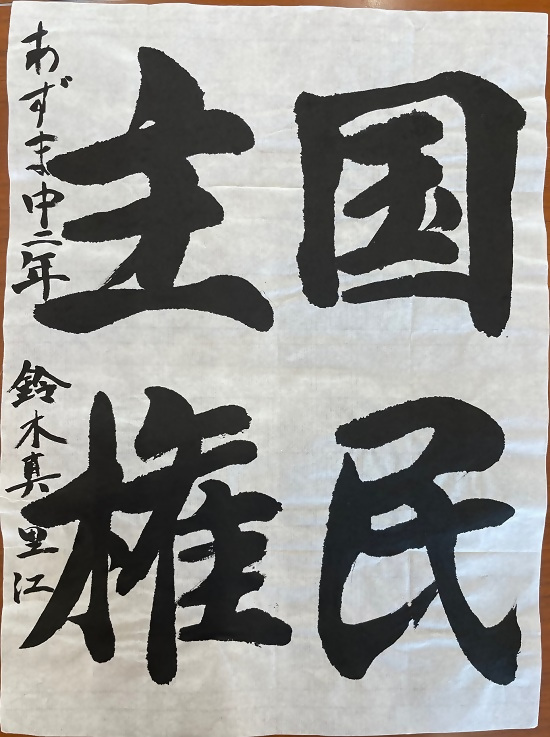 国民
主権
あずま中二年 鈴木真里江